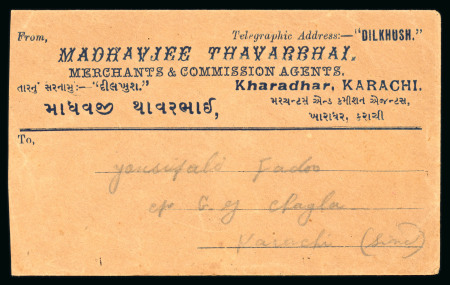 From, Telegraphic Address:—"DILKHUSH."
MADHAVJEE THAVARBHAI,
MERCHANTS & COMMISSION AGENTS.
તારનું સરનામું:—"દીલખુશ." Kharadhar, KARACHI.
માધવજી થાવરભાઈ, મરચન્ટસ એન્ડ કમીશન એજન્ટસ,
ખારાધર, કરાચી
To,
yousufali Fadoo
c/o C. G Chagla
Karachi (Sind)